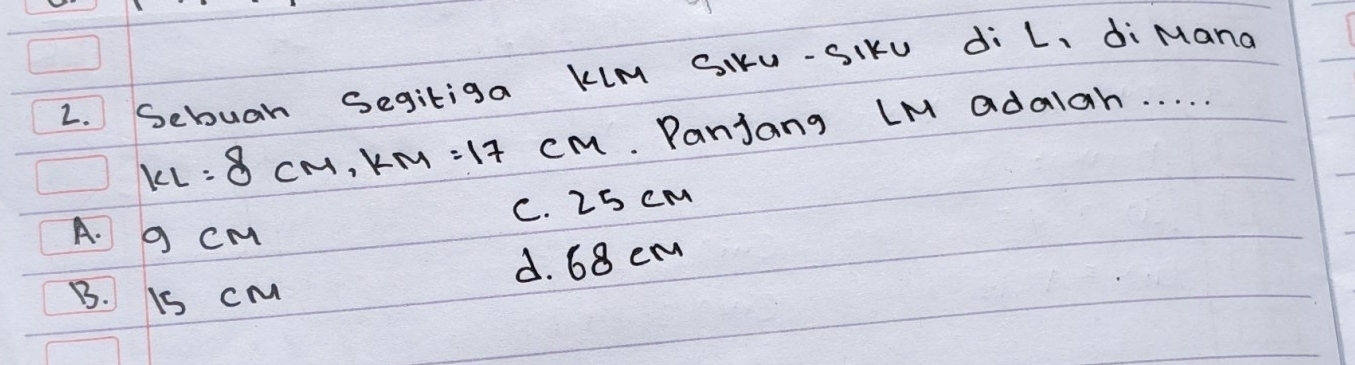 2. Sebuah Segitiga KLM Siku-Siku di L, di Mana
KL = 8 CM, KM = 17 CM. Panjang LM adalah .....
A. 9 CM C. 25 CM
B. 15 CM d. 68 CM